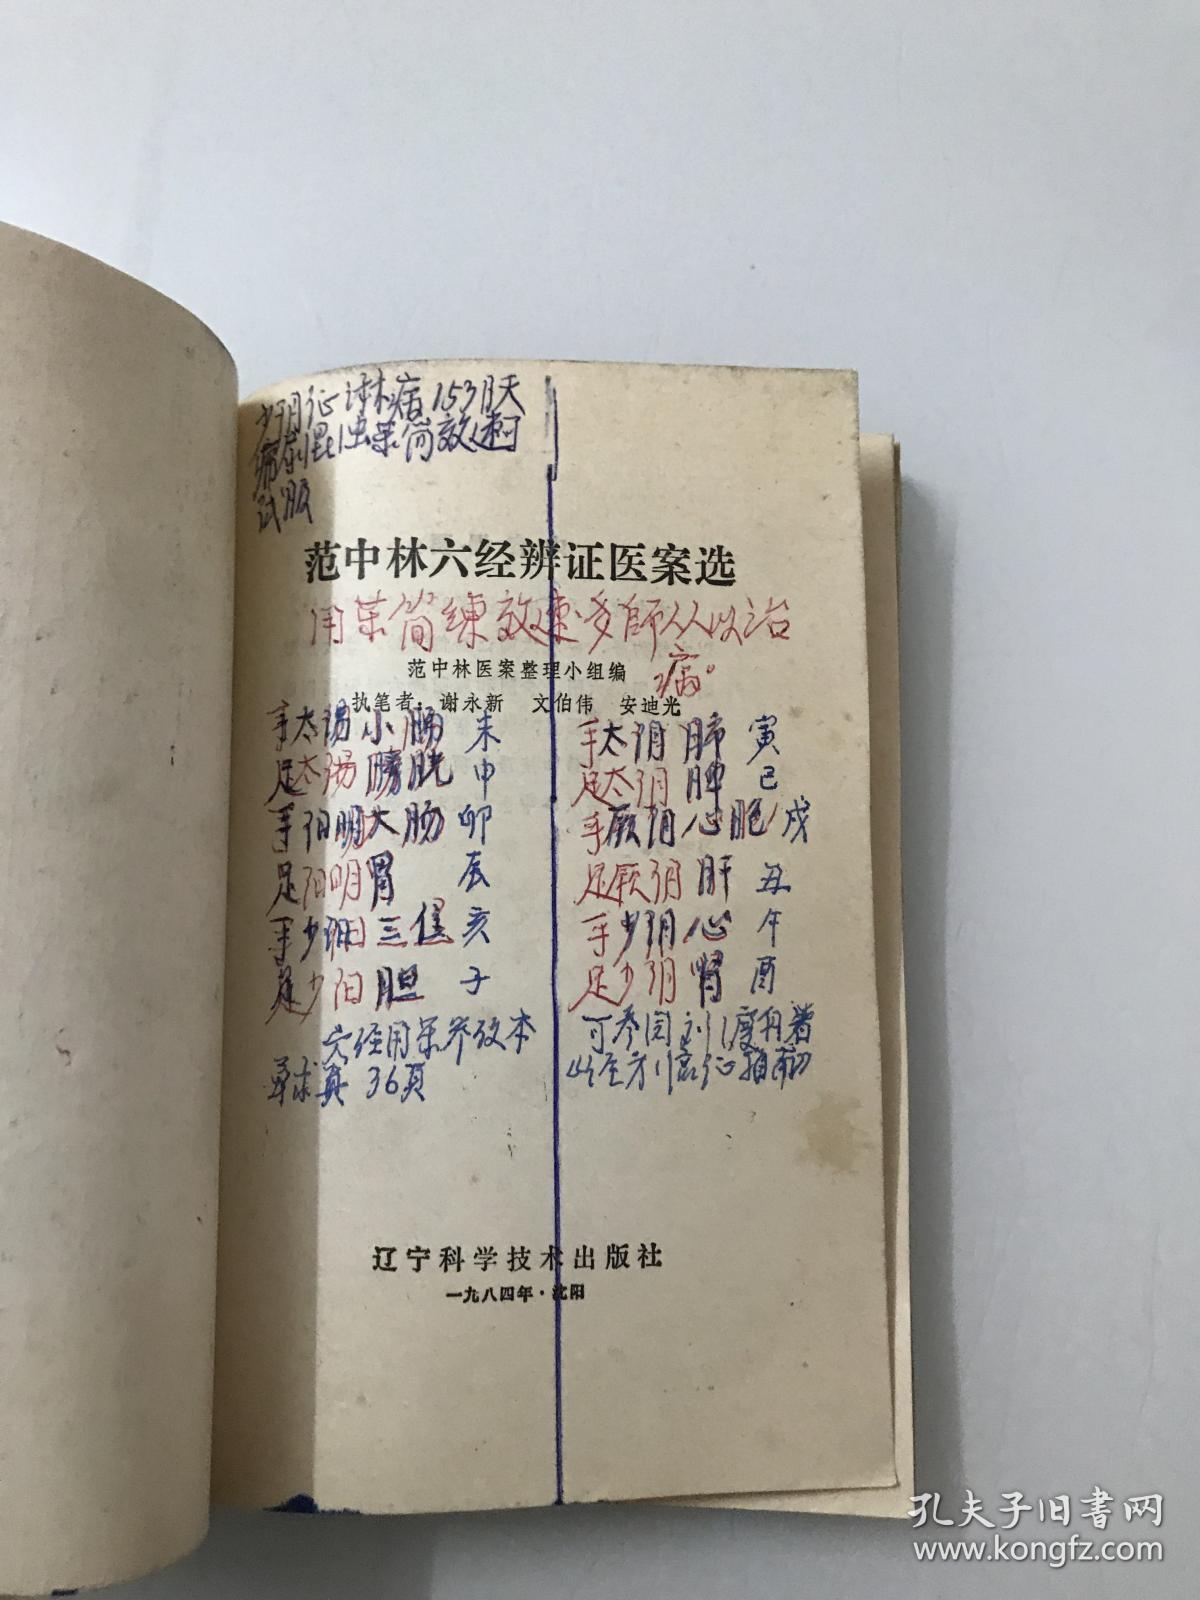 少阴证淋病153页天
尿混浊药简效速可
试服
范中林六经辨证医案选
用药简练效速多师从以治
病。
范中林医案整理小组编
执笔者：谢永新 文伯伟 安迪光
手太阳小肠 未
足太阳膀胱 申
手阳明大肠 卯
足阳明胃 辰
手少阳三焦 亥
足少阳胆 子
六经用药并效本
草求真 36页
手太阴肺 寅
足太阴脾 巳
手厥阴心胞 戌
足厥阴肝 丑
手少阴心 午
足少阴肾 酉
可参阅刘渡舟著
经方临证指南
辽宁科学技术出版社
一九八四年·沈阳
孔夫子旧书网
www.kongfz.com